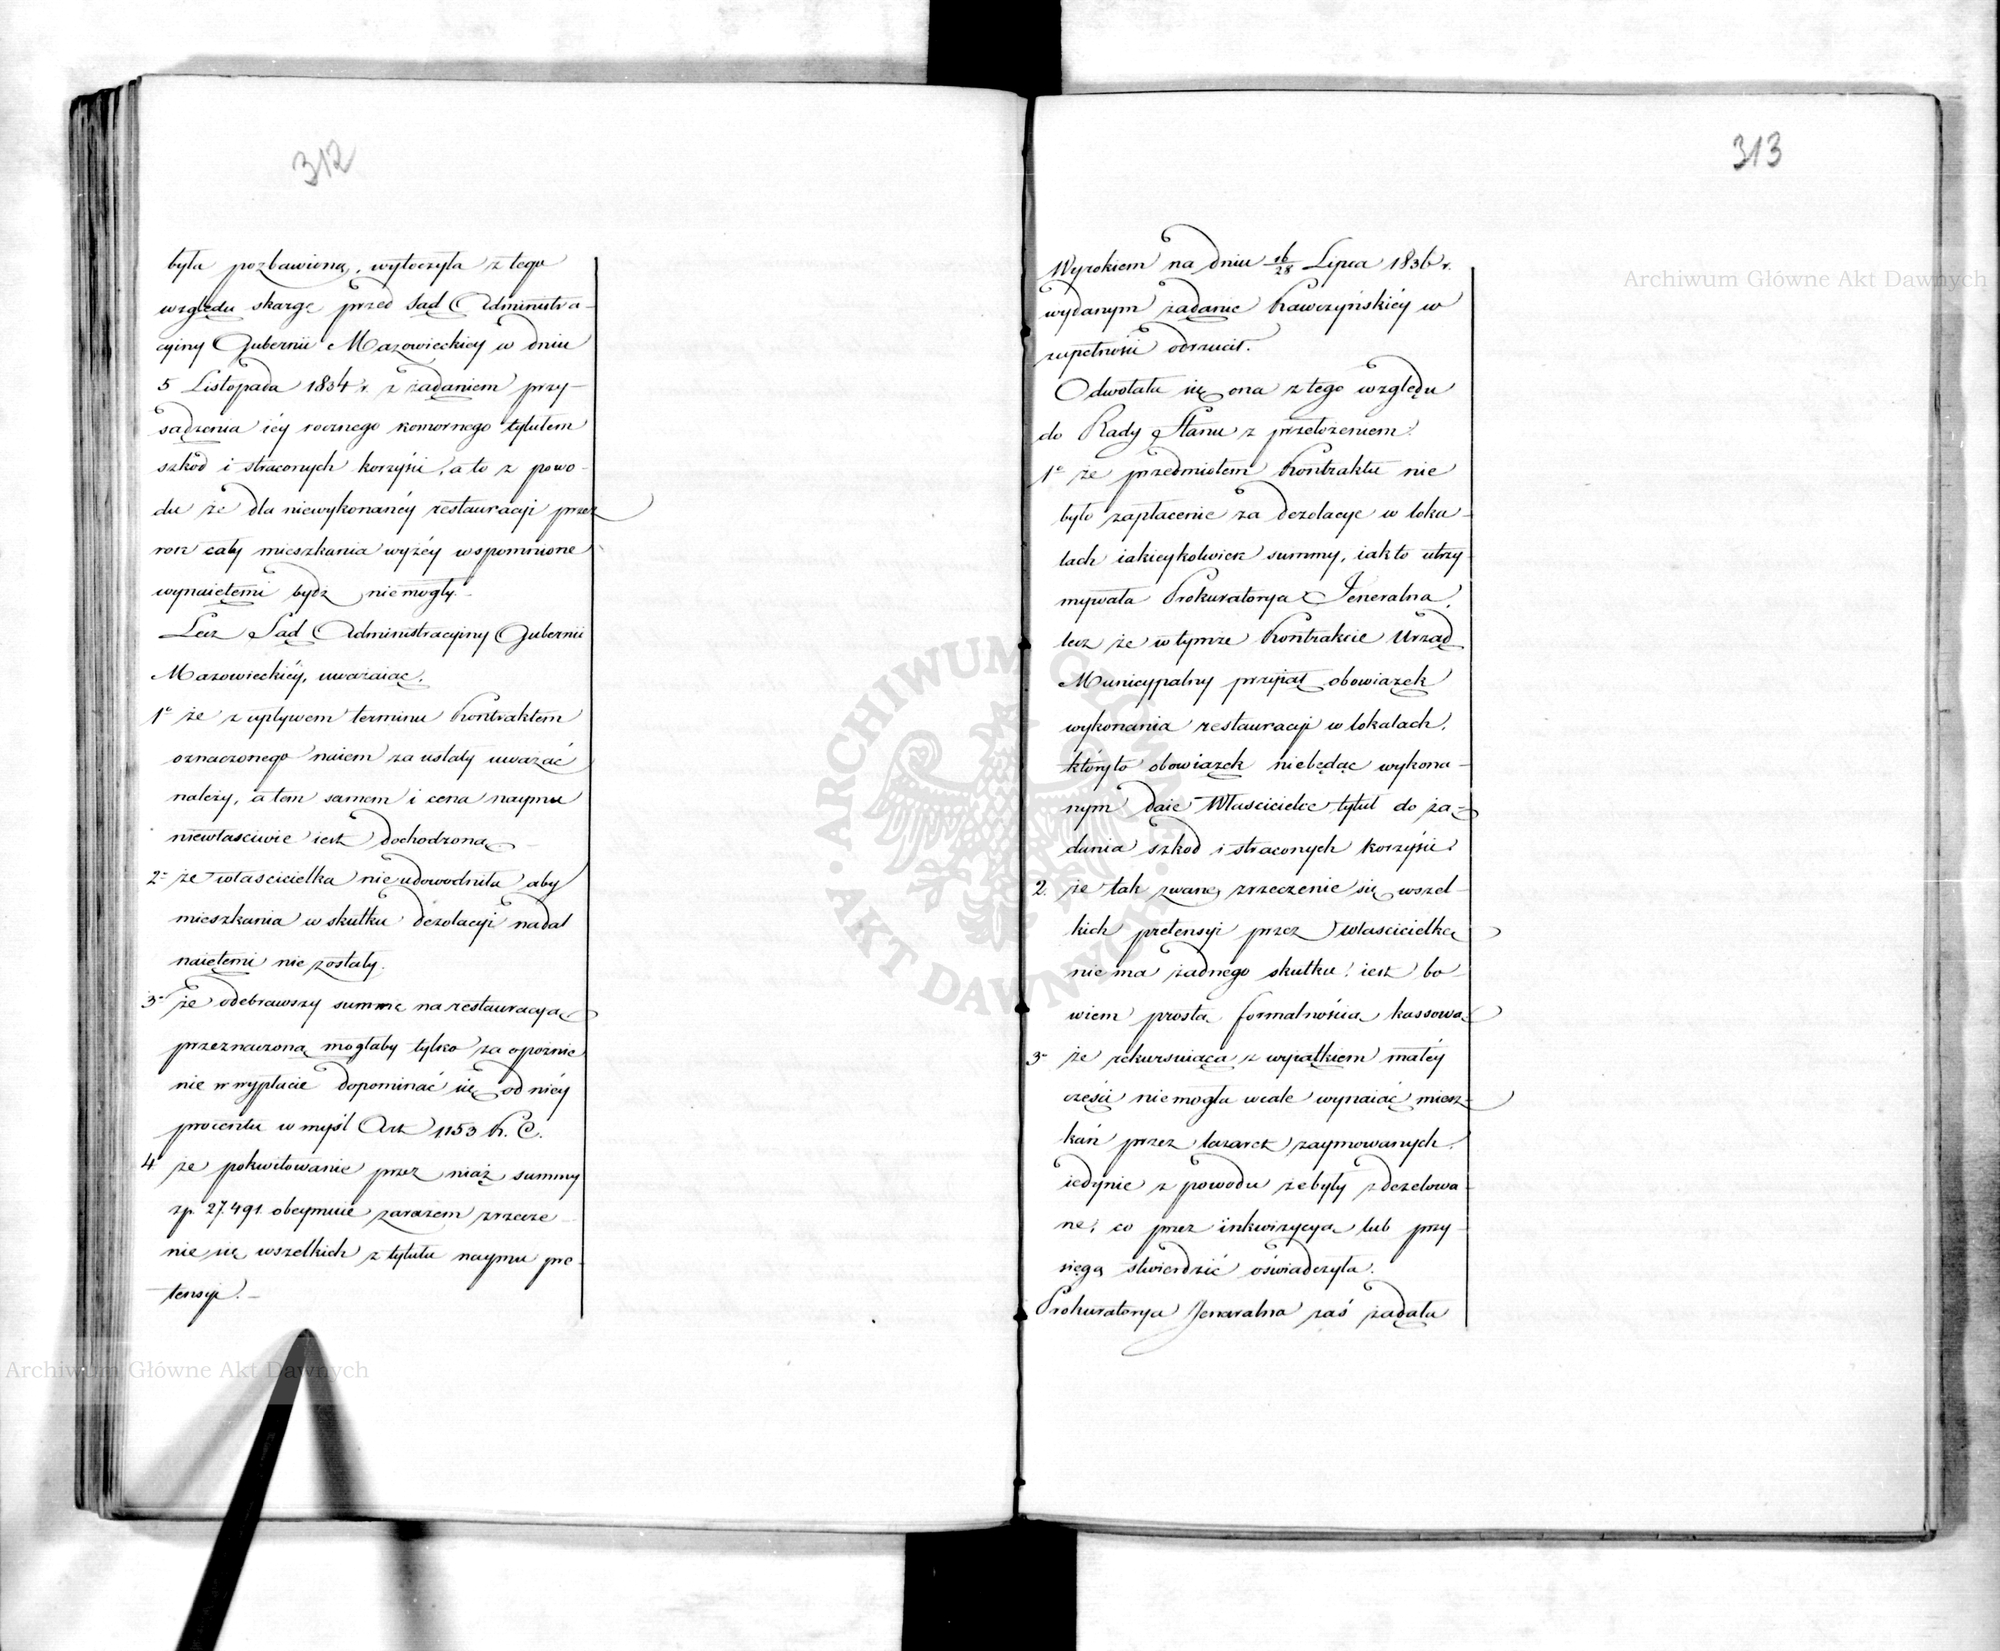 312
była pozbawioną, wytoczyła z tego
względu skargę przed Sąd Administra-
cyiny Gubernii Mazowieckiey w dniu
5 Listopada 1834 r. z żądaniem przy-
sądzenia iéy rocznego komornego tytułem
szkód i straconych korzyści, a to z powo-
du że dla niewykonanéy restauracyi przez
rok cały mieszkania wyżéy wspomnione
wynaiętemi bydź niemogły.
Lecz Sąd Administracyiny Gubernii
Mazowieckiéy, uważaiąc,
1e że z upływem terminu Kontraktem
oznaczonego naiem za ustały uważać
należy, a tem samem i cena naymu
niewłaściwie iest dochodzoną
2e że właścicielka nieudowodniła aby
mieszkania w skutku dezolacyi nadal
naiętemi nie zostały.
3e że odebrawszy summę na restauracyą
przeznaczoną mogłaby tylko za opoźnie
nie w wypłacie dopominać się od niéy
procentu w myśl Art 1153 K. C.
4 że pokwitowanie przez niąż summy
zp. 27.491. obeymuie zarazem zrzecze-
nie się wszelkich z tytułu naymu pre-
tensyi.
313
Wyrokiem na dniu 16/28 Lipca 1836 r.
wydanym żądanie Kawczyńskiéy w
zupełności odrzucił.
Odwołała się ona z tego względu
do Rady Stanu z przełożeniem.
1e że przedmiotem Kontraktu nie
było zapłacenie za dezolacye w loka-
lach iakieykolwiek summy, iak to utrzy-
mywała Prokuratorya Jeneralna,
lecz że w tymże Kontrakcie Urząd
Municypalny przyiął obowiązek
wykonania restauracyi w lokalach,
któryto obowiązek niebędąc wykona-
nym daie Właścicielce tytuł do żą-
dania szkód i straconych korzyści.
2. że tak zwane zrzeczenie się wszel-
kich pretensyi przez właścicielkę
nie ma żadnego skutku, iest bo-
wiem prostą formalnością kassową
3e że rekursuiąca z wyiątkiem małéy
części niemogła wcale wynaiąć miesz-
kań przez lazaret zaymowanych,
iedynie z powodu że były zdezelowa-
ne, co przez inkwizycyą lub przy-
sięgą stwierdzić oświadczyła.
Prokuratorya Jeneralna zaś żądała
Archiwum Główne Akt Dawnych
Archiwum Główne Akt Dawnych